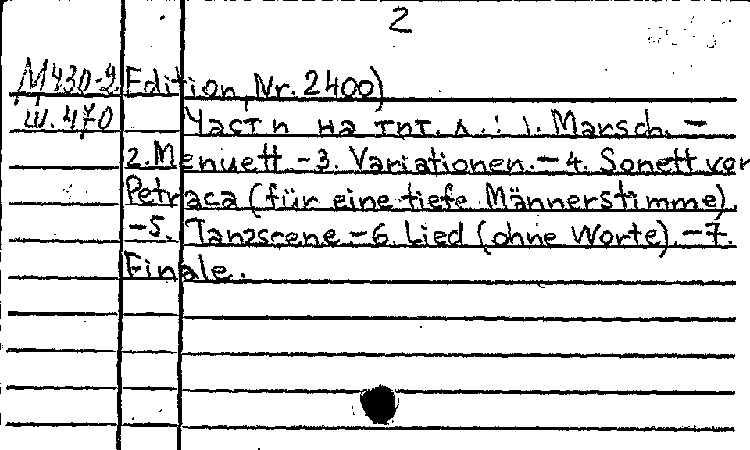 2
М430-2 Edition, Nr. 2400)
Ш.470 Части на тит. л.: 1. Marsch. –
2. Menuett – 3. Variationen. – 4. Sonett von
Petraca (für eine tiefe Männerstimme).
– 5. Tanzscene – 6. Lied (ohne Worte). – 7.
Finale.